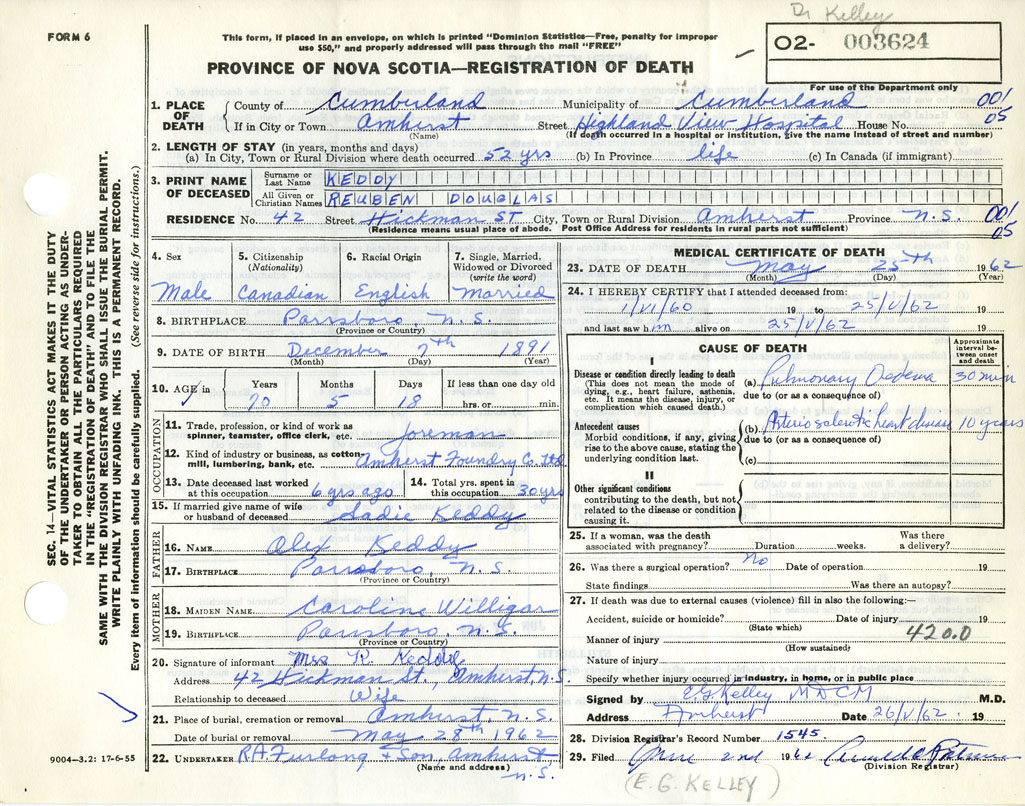 Dr Kelley
FORM 6
This form, if placed in an envelope, on which is printed "Dominion Statistics—Free, penalty for improper
use $50," and properly addressed will pass through the mail "FREE"
O2- 003624
PROVINCE OF NOVA SCOTIA—REGISTRATION OF DEATH
For use of the Department only
1. PLACE OF DEATH
County of Cumberland Municipality of Cumberland 001
If in City or Town Amherst Street Highland View Hospital House No. 05
(Name) (If death occurred in hospital or institution, give the name instead of street and number)
2. LENGTH OF STAY (in years, months and days)
(a) In City, Town or Rural Division where death occurred 52 yrs (b) In Province life (c) In Canada (if immigrant)
3. PRINT NAME OF DECEASED
Surname or Last Name KEDDY
All Given or Christian Names REUBEN DOUGLAS
RESIDENCE No. 42 Street Hickman ST City, Town or Rural Division Amherst Province N.S. 001
(Residence means usual place of abode. Post Office Address for residents in rural parts not sufficient) 05
4. Sex
Male
5. Citizenship
(Nationality)
Canadian
6. Racial Origin
English
7. Single, Married,
Widowed or Divorced
(write the word)
Married
8. BIRTHPLACE Parrsboro, N.S.
(Province or Country)
9. DATE OF BIRTH December 7th 1891
(Month) (Day) (Year)
10. AGE in
Years Months Days If less than one day old
70 5 18 hrs. or min.
OCCUPATION
11. Trade, profession, or kind of work as
spinner, teamster, office clerk, etc. foreman
12. Kind of industry or business, as cotton-
mill, lumbering, bank, etc. Amherst Foundry Co. Ltd
13. Date deceased last worked
at this occupation 6 yrs ago
14. Total yrs. spent in
this occupation 30 yrs
15. If married give name of wife
or husband of deceased Sadie Keddy
FATHER
16. NAME Alex Keddy
17. BIRTHPLACE Parrsboro, N.S.
(Province or Country)
MOTHER
18. MAIDEN NAME Caroline Willigar
19. BIRTHPLACE Parrsboro, N.S.
(Province or Country)
20. Signature of informant Mrs R. Keddy
Address 42 Hickman St., Amherst, N.S.
Relationship to deceased Wife
21. Place of burial, cremation or removal Amherst, N.S.
Date of burial or removal May 28th 1962
22. UNDERTAKER R.A. Furlong & Son, Amherst
(Name and address) N.S.
MEDICAL CERTIFICATE OF DEATH
23. DATE OF DEATH May 25th 1962
(Month) (Day) (Year)
24. I HEREBY CERTIFY that I attended deceased from:
1/VI/60 19 to 25/V/62 19
and last saw him alive on 25/V/62 19
CAUSE OF DEATH
Approximate
interval be-
tween onset
and death
I
Disease or condition directly leading to death
(This does not mean the mode of
dying, e.g., heart failure, asthenia,
etc. It means the disease, injury, or
complication which caused death.)
(a) Pulmonary Oedema 30 min
due to (or as a consequence of)
Antecedent causes
Morbid conditions, if any, giving
rise to the above cause, stating the
underlying condition last.
(b) Arteriosclerotic heart disease 10 years
due to (or as a consequence of)
(c)
II
Other significant conditions
contributing to the death, but not
related to the disease or condition
causing it.
25. If a woman, was the death
associated with pregnancy? Duration weeks.
Was there
a delivery?
26. Was there a surgical operation? No Date of operation 19
State findings Was there an autopsy?
27. If death was due to external causes (violence) fill in also the following:—
Accident, suicide or homicide? Date of injury 19
(State which) 420.0
Manner of injury
(How sustained)
Nature of injury
Specify whether injury occurred in industry, in home, or in public place
Signed by E.G. Kelley MDCM M.D.
Address Amherst Date 26/V/62. 19
28. Division Registrar's Record Number 1545
29. Filed June 2nd 196
(Division Registrar)
(E. G. KELLEY)
SEC. 14—VITAL STATISTICS ACT MAKES IT THE DUTY
OF THE UNDERTAKER OR PERSON ACTING AS UNDER-
TAKER TO OBTAIN ALL THE PARTICULARS REQUIRED
IN THE "REGISTRATION OF DEATH" AND TO FILE THE
SAME WITH THE DIVISION REGISTRAR WHO SHALL ISSUE THE BURIAL PERMIT.
WRITE PLAINLY WITH UNFADING INK. THIS IS A PERMANENT RECORD.
Every item of information should be carefully supplied. (See reverse side for instructions.)
9004—3.2: 17-6-55